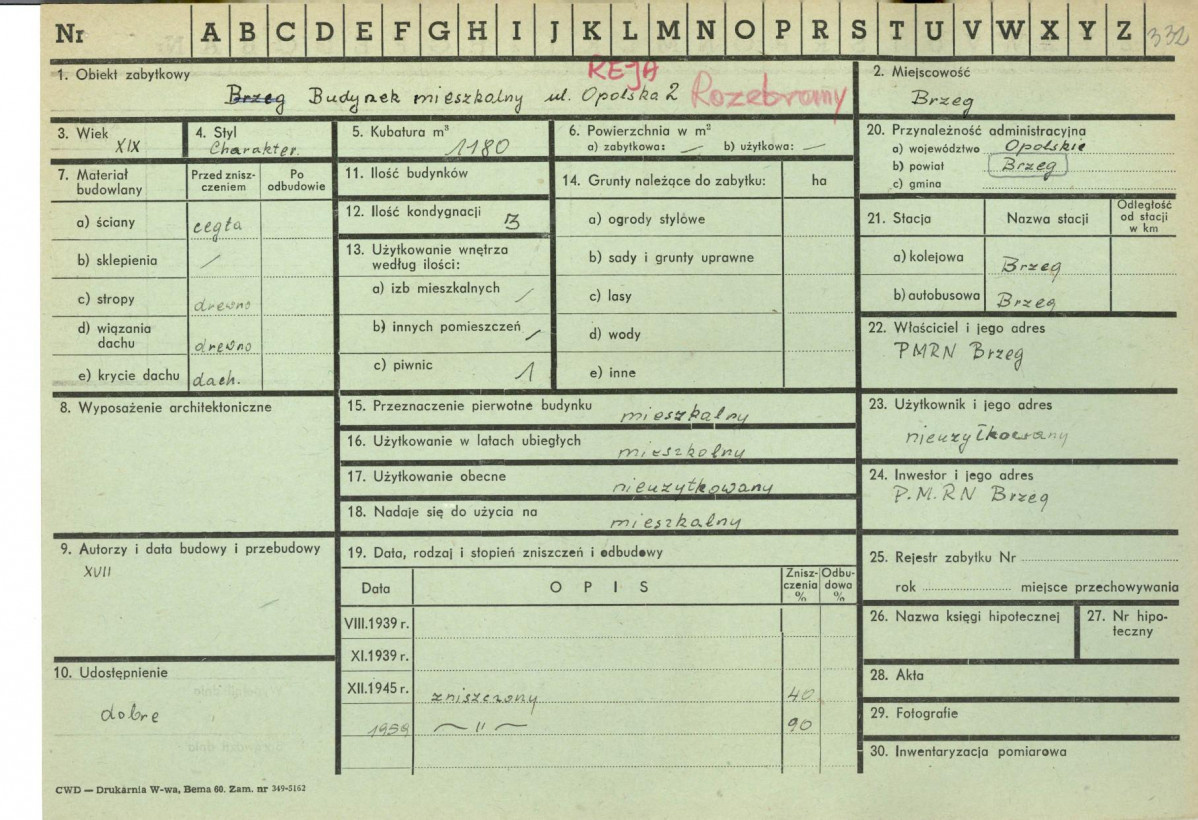 Nr A B C D E F G H I J K L M N O P R S T U V W X Y Z 332
1. Obiekt zabytkowy
REJA
Brzeg Budynek mieszkalny ul. Opolska 2 Rozebrany
2. Miejscowość
Brzeg
3. Wiek
XIX
4. Styl
Charakter.
5. Kubatura m³
1180
6. Powierzchnia w m²
a) zabytkowa: — b) użytkowa: —
20. Przynależność administracyjna
a) województwo Opolskie
b) powiat Brzeg
c) gmina
7. Materiał budowlany
Przed zniszczeniem
Po odbudowie
a) ściany cegła
b) sklepienia /
c) stropy drewno
d) wiązania dachu drewno
e) krycie dachu dach.
11. Ilość budynków
12. Ilość kondygnacji 3
13. Użytkowanie wnętrza
według ilości:
a) izb mieszkalnych /
b) innych pomieszczeń /
c) piwnic 1
14. Grunty należące do zabytku: ha
a) ogrody stylowe
b) sady i grunty uprawne
c) lasy
d) wody
e) inne
21. Stacja Nazwa stacji Odległość od stacji w km
a) kolejowa Brzeg
b) autobusowa Brzeg
22. Właściciel i jego adres
PMRN Brzeg
8. Wyposażenie architektoniczne
15. Przeznaczenie pierwotne budynku mieszkalny
16. Użytkowanie w latach ubiegłych mieszkalny
17. Użytkowanie obecne nieużytkowany
18. Nadaje się do użycia na mieszkalny
23. Użytkownik i jego adres
nieużytkowany
24. Inwestor i jego adres
P.M.RN Brzeg
9. Autorzy i data budowy i przebudowy
XVII
19. Data, rodzaj i stopień zniszczeń i odbudowy
Data O P I S Zniszczenia % Odbudowa %
VIII.1939 r.
XI.1939 r.
XII.1945 r. zniszczony 40
1959 — " — 90
25. Rejestr zabytku Nr
rok miejsce przechowywania
26. Nazwa księgi hipotecznej
27. Nr hipoteczny
28. Akta
29. Fotografie
30. Inwentaryzacja pomiarowa
10. Udostępnienie
dobre
CWD — Drukarnia W-wa, Bema 60. Zam. nr 349-5162